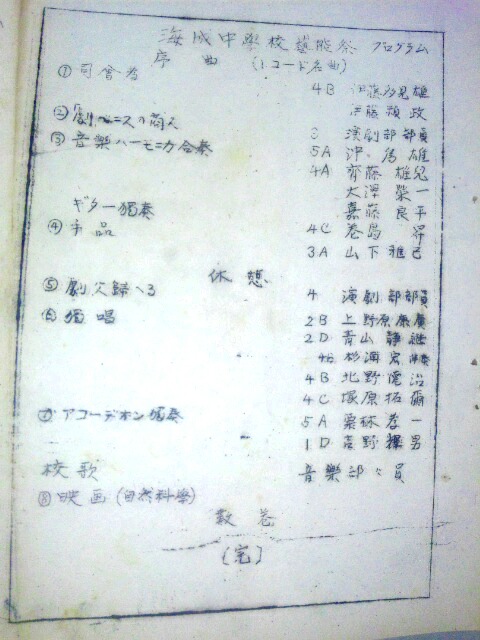 海成中學校藝能祭 プログラム
序曲 (レコード名曲)
① 司會者 4B 伊藤 雄
伊藤 政
② 劇 ベニスの商人 3 演劇部部員
③ 音樂ハーモニカ合奏 5A 沖 雄
4A 齊藤 雄兒
大澤 榮一
嘉藤 良平
ギター獨奏 4C 巻島 昇
④ 手品 3A 山下 雅己
休憩
⑤ 劇 父歸へる 4 演劇部部員
⑥ 獨唱 2B 上野原 康廣
2D 青山 静
4B 杉浦 宏
4B 北野 治
4C 塚原 拓彌
⑦ アコーデオン獨奏 5A 栗林 孝一
1D 吉野 輝男
校歌 音樂部々員
⑧ 映画 (自然科學)
散巻
(完)